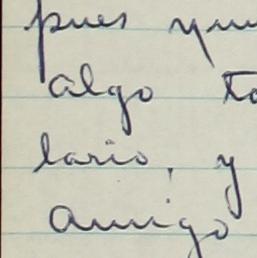 pues
algo
lario, y
amigo